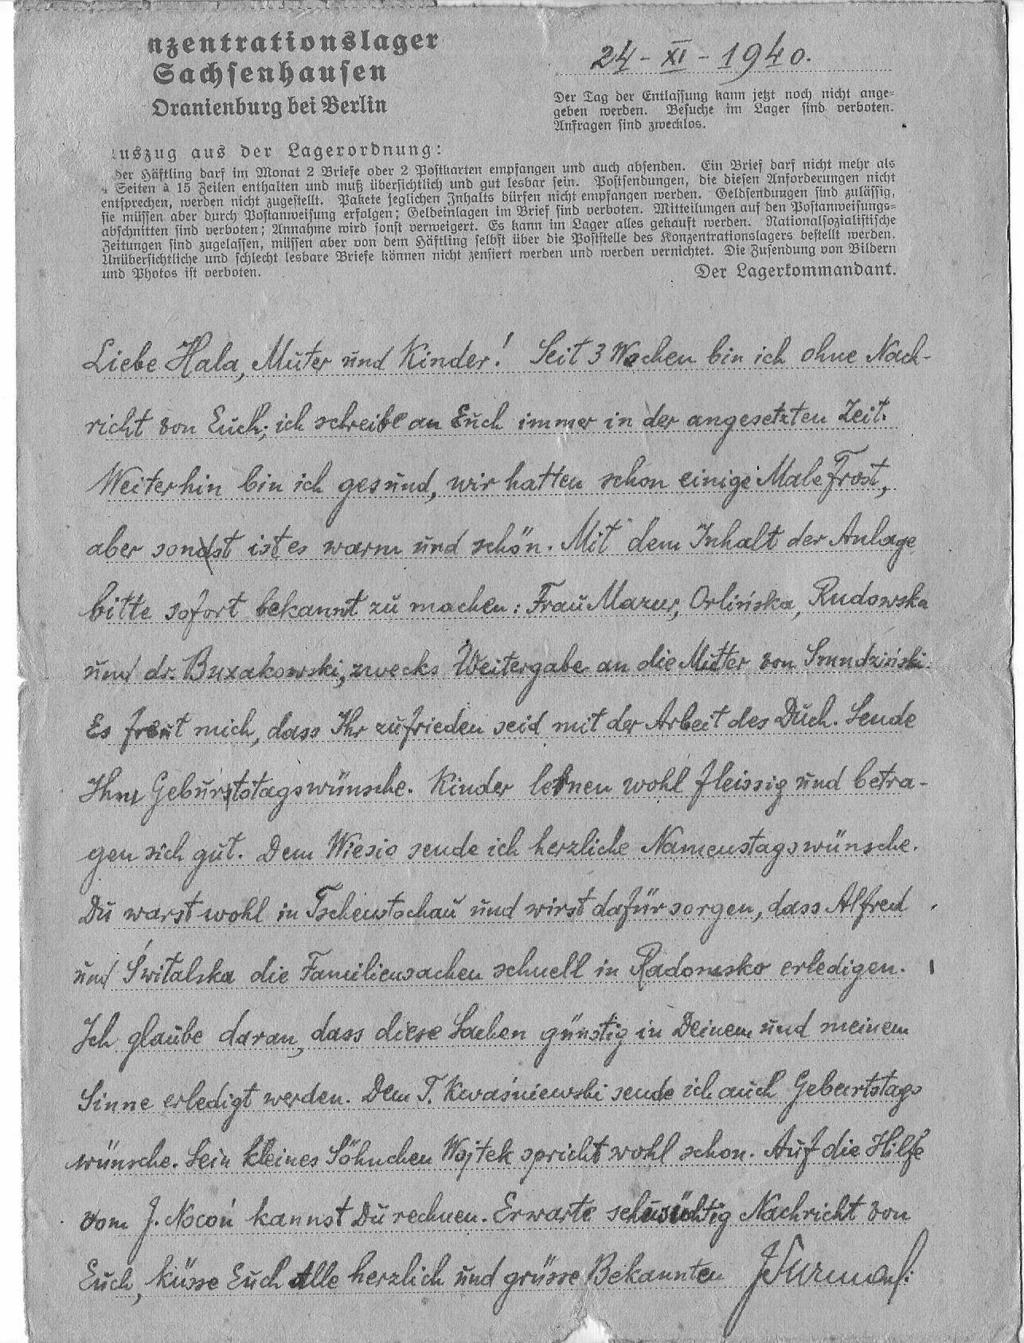 nzentrationslager
Sachsenhausen
Oranienburg bei Berlin
24-XI-1940.
Der Tag der Entlassung kann jetzt noch nicht ange-
geben werden. Besuche im Lager sind verboten.
Anfragen sind zwecklos.
uszug aus der Lagerordnung:
Der Häftling darf im Monat 2 Briefe oder 2 Postkarten empfangen und auch absenden. Ein Brief darf nicht mehr als
4 Seiten à 15 Zeilen enthalten und muß übersichtlich und gut lesbar sein. Postsendungen, die diesen Anforderungen nicht
entsprechen, werden nicht zugestellt. Pakete jeglichen Inhalts dürfen nicht empfangen werden. Geldsendungen sind zulässig,
sie müssen aber durch Postanweisung erfolgen; Geldeinlagen im Brief sind verboten. Mitteilungen auf den Postanweisungs-
abschnitten sind verboten; Annahme wird sonst verweigert. Es kann im Lager alles gekauft werden. Nationalsozialistische
Zeitungen sind zugelassen, müssen aber von dem Häftling selbst über die Poststelle des Konzentrationslagers bestellt werden.
Unübersichtliche und schlecht lesbare Briefe können nicht zensiert werden und werden vernichtet. Die Zusendung von Bildern
und Photos ist verboten.
Der Lagerkommandant.
Liebe Hala, Muter und Kinder! Seit 3 Wochen bin ich ohne Nach-
richt von Euch; ich schreibe an Euch immer in der angesetzten Zeit.
Weiterhin bin ich gesund, wir hatten schon einige Male Frost,
aber sonst ist es warm und schön. Mit dem Inhalt der Anlage
bitte sofort bekannt zu machen: Frau Mazur, Orlińska, Rudowska
und dr. Buxakowski, zwecks Weitergabe an die Mutter von
Es freut mich, dass Ihr zufrieden seid mit der Arbeit des Duch. Sende
Ihm Geburtstagswünsche. Kinder lernen wohl fleissig und betra-
gen sich gut. Dem Wiesio sende ich herzliche Namenstagswünsche.
Du warst wohl in Tschenstochau und wirst dafür sorgen, dass Alfred
und Świtalska die Familiensachen schnell in Radomsko erledigen.
Ich glaube daran, dass diese Sachen günstig in Deinem und meinem
Sinne erledigt werden. Dem T. Kwaśniewski sende ich auch Geburtstags
wünsche. Sein kleines Söhnchen Wojtek spricht wohl schon. Auf die Hilfe
vom J. Nocoń kannst Du rechnen. Erwarte sehnsüchtig Nachricht von
Euch, küsse Euch Alle herzlich und grüsse Bekannten